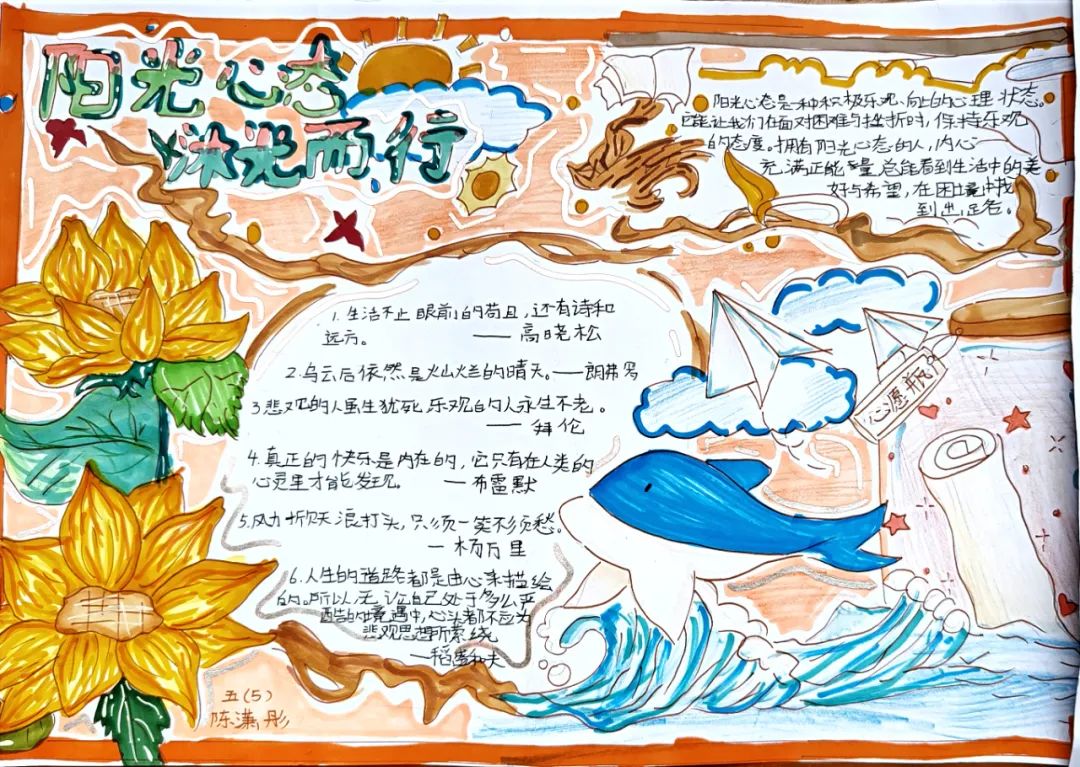 阳光心态
沐光而行
阳光心态是一种积极乐观、向上的心理状态。
它能让我们在面对困难与挫折时,保持乐观
的态度。拥有阳光心态的人,内心
充满正能量,总能看到生活中的美
好与希望,在困境中找
到出路。
1.生活不止眼前的苟且,还有诗和
远方。——高晓松
2.乌云后依然是灿烂的晴天。——朗弗罗
3悲观的人虽生犹死,乐观的人永生不老。
——拜伦
4.真正的快乐是内在的,它只有在人类的
心灵里才能发现。——布雷默
5.风力掀天浪打头,只须一笑不须愁。
—杨万里
6.人生的道路都是由心来描绘
的。所以无论自己处于多么严
酷的境遇中,心头都不应为
悲观思想所萦绕
—稻盛和夫
心愿瓶
五(5)
陈潇彤